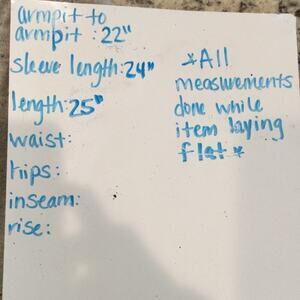 armpit to
armpit : 22"
sleeve length: 24"
length: 25"
waist:
hips:
inseam:
rise:
*All
measurements
done while
item laying
flat*